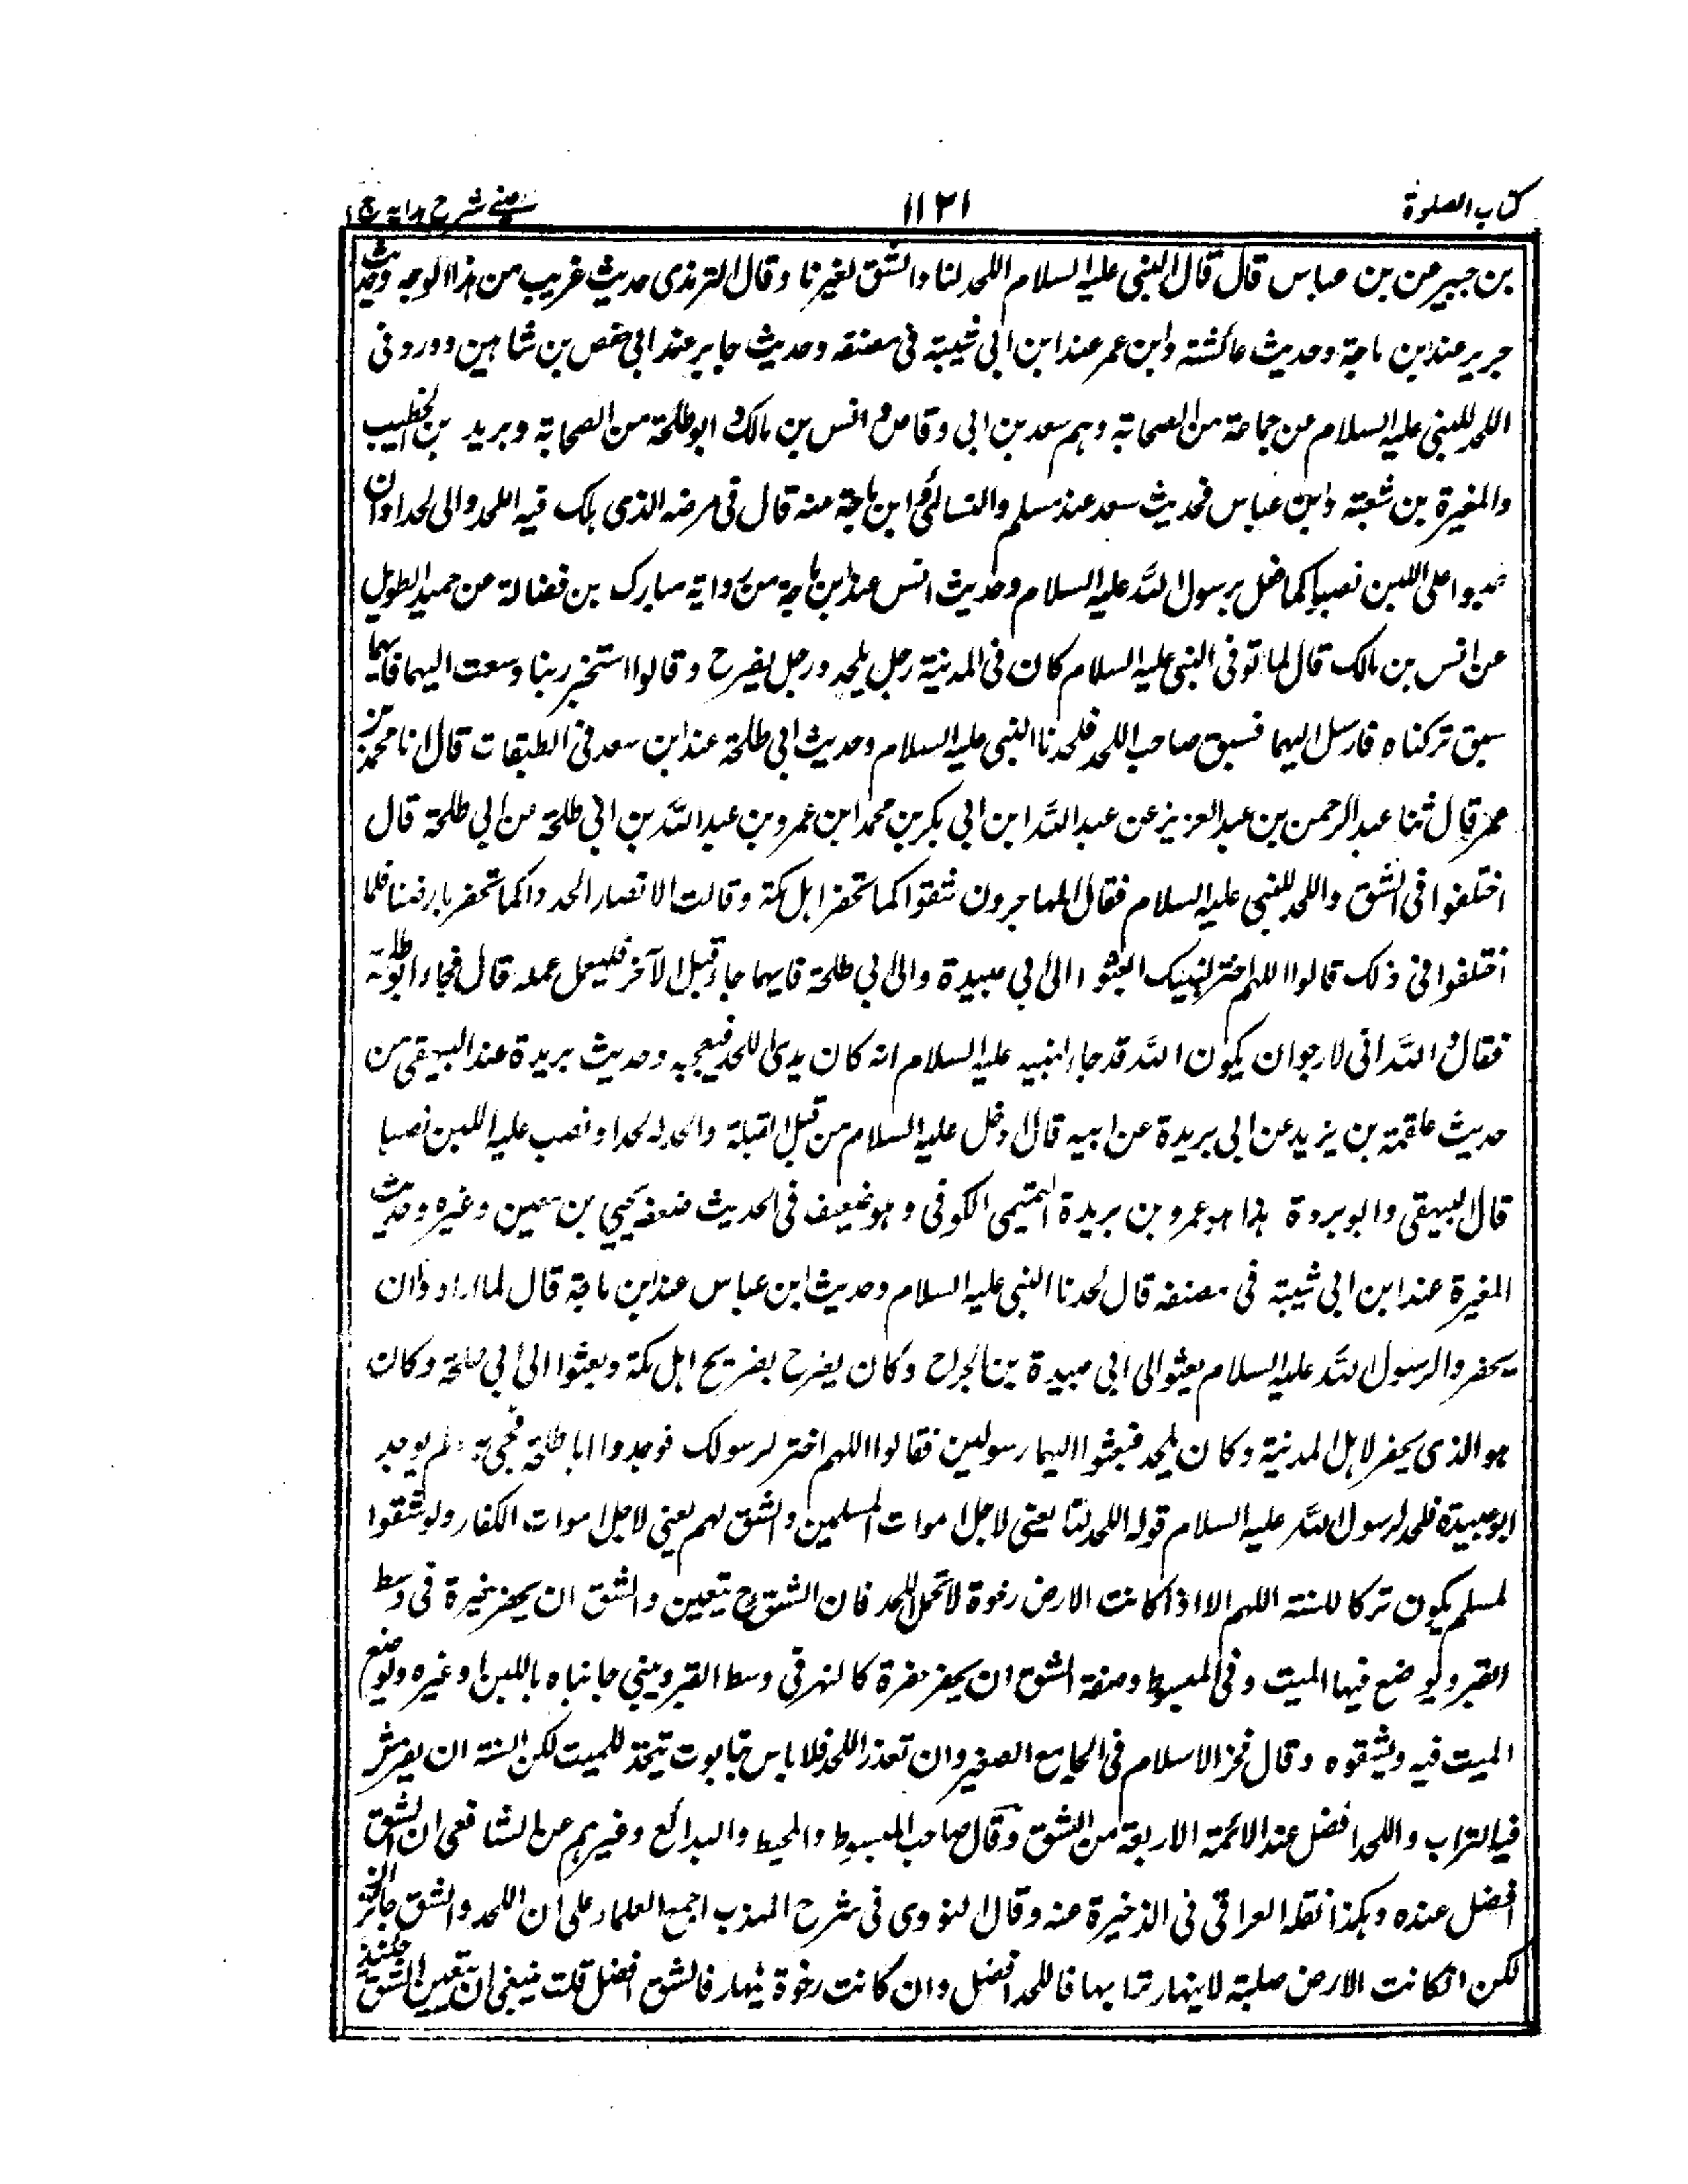 كتاب الصلوة
١١٢١
عينى شرح هدايه ج ١
بن جبير عن بن عباس قال قال النبى عليه السلام اللحد لنا والشق لغيرنا وقال الترمذى حديث غريب من هذا الوجه وحديث
جرير عند بن ماجة وحديث عائشة وابن عمر عند ابن ابى شيبة فى مصنفه وحديث جابر عند ابى حفص بن شاهين وورد فى
اللحد للنبى عليه السلام عن جماعة من الصحابة وهم سعد بن ابى وقاص وانس بن مالك وابو طلحة من الصحابة وبريد بن الخطيب
والمغيرة بن شعبة وابن عباس فحديث سعد عند مسلم والنسائى وابن ماجة عنه قال فى مرضه الذى هلك فيه اللحد والى لحدا وان
على اللبن نصبا كما فعل برسول الله عليه السلام وحديث انس عند ابن ماجة من رواية مبارك بن فضالة عن حميد الطويل
عن انس بن مالك قال لما توفى النبى عليه السلام كان فى المدينة رجل يلحد ورجل يضرح وقالوا استخير ربنا وسعت اليهما فايهما
سبق تركناه فارسل اليهما فسبق صاحب اللحد فلحدنا النبى عليه السلام وحديث ابى طلحة عند ابن سعد فى الطبقات قال انا محمد بن
عمر قال ثنا عبد الرحمن بن عبد العزيز عن عبد الله ابن ابى بكر بن محمد ابن عمرو بن عبد الله بن ابى طلحة عن ابى طلحة قال
اختلفوا فى الشق واللحد للنبى عليه السلام فقال المهاجرون شقوا كما تحفر اهل مكة وقالت الانصار الحدوا كما تحفر بارضنا فلما
اختلفوا فى ذلك قالوا اللهم اختر لنبيك ابعثوا الى ابى عبيدة والى ابى طلحة فايهما جاء قبل الآخر فليعمل عمله قال فجاء ابو طلحة
فقال والله انى لارجو ان يكون الله قد جار لنبيه عليه السلام انه كان يرى اللحد فيعجبه وحديث بريدة عند البيهقى من
حديث علقمة بن يزيد عن ابى بريدة عن ابيه قال دخل عليه السلام من قبل القبلة والحد له لحدا ونصب عليه اللبن نصبا
قال البيهقى وابو بردة هذا هو عمرو بن بريدة التميمى الكوفى وهو ضعيف فى الحديث ضعفه يحيى بن معين وغيره وحديث
المغيرة عند ابن ابى شيبة فى مصنفه قال لحدنا النبى عليه السلام وحديث ابن عباس عند ابن ماجة قال لما ارادوا ان
يحفروا لرسول الله عليه السلام بعثوا الى ابى عبيدة بن الجراح وكان يضرح بضريح اهل مكة وبعثوا الى ابى طلحة وكان
هو الذى يحفر لاهل المدينة وكان يلحد فبعثوا اليهما رسولين فقالوا اللهم اختر لرسولك فوجدوا ابا طلحة فجىء به ولم يوجد
ابو عبيدة فلحد لرسول الله عليه السلام قوله اللحد لنا يعنى لاجل اموات المسلمين والشق لهم يعنى لاجل اموات الكفار ولو شقوا
لمسلم يكون تركا للسنة اللهم الا اذا كانت الارض رخوة لا تحمل اللحد فان الشق ح يتعين والشق ان يحفر حفيرة فى وسط
القبر ويوضع فيها الميت وفى المبسوط وصفة الشق ان يحفر حفرة كالنهر فى وسط القبر ويبنى جانباه باللبن او غيره ويوضع
الميت فيه ويشقوه وقال فخر الاسلام فى الجامع الصغير وان تعذر اللحد فلا باس بتابوت يتخذ للميت لكن السنة ان يفرش
فيه التراب واللحد افضل عند الائمة الاربعة من الشق وقال صاحب المبسوط والمحيط والبدائع وغيرهم عن الشافعى ان الشق
افضل عنده وهكذا نقله العراقى فى الذخيرة عنه وقال النووى فى شرح المهذب اجمع العلماء على ان اللحد والشق جائز
لكن ان كانت الارض صلبة لا ينهار ترابها فاللحد افضل وان كانت رخوة ينهار فالشق افضل قلت ينبغى ان يتعين الشق حينئذ